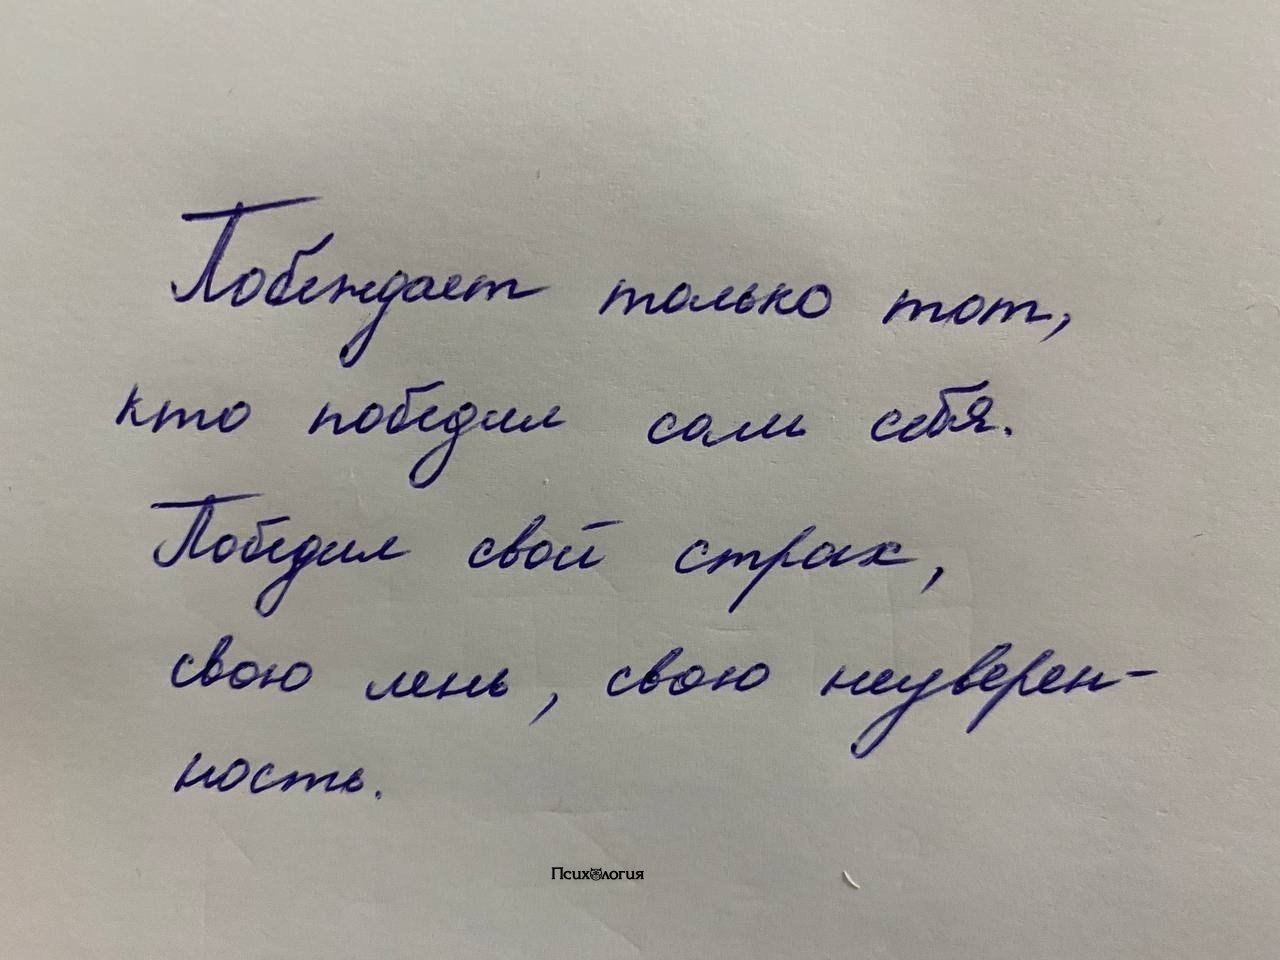 Побеждает только тот,
кто победил сам себя.
Победил свой страх,
свою лень, свою неуверен-
ность.
Психология